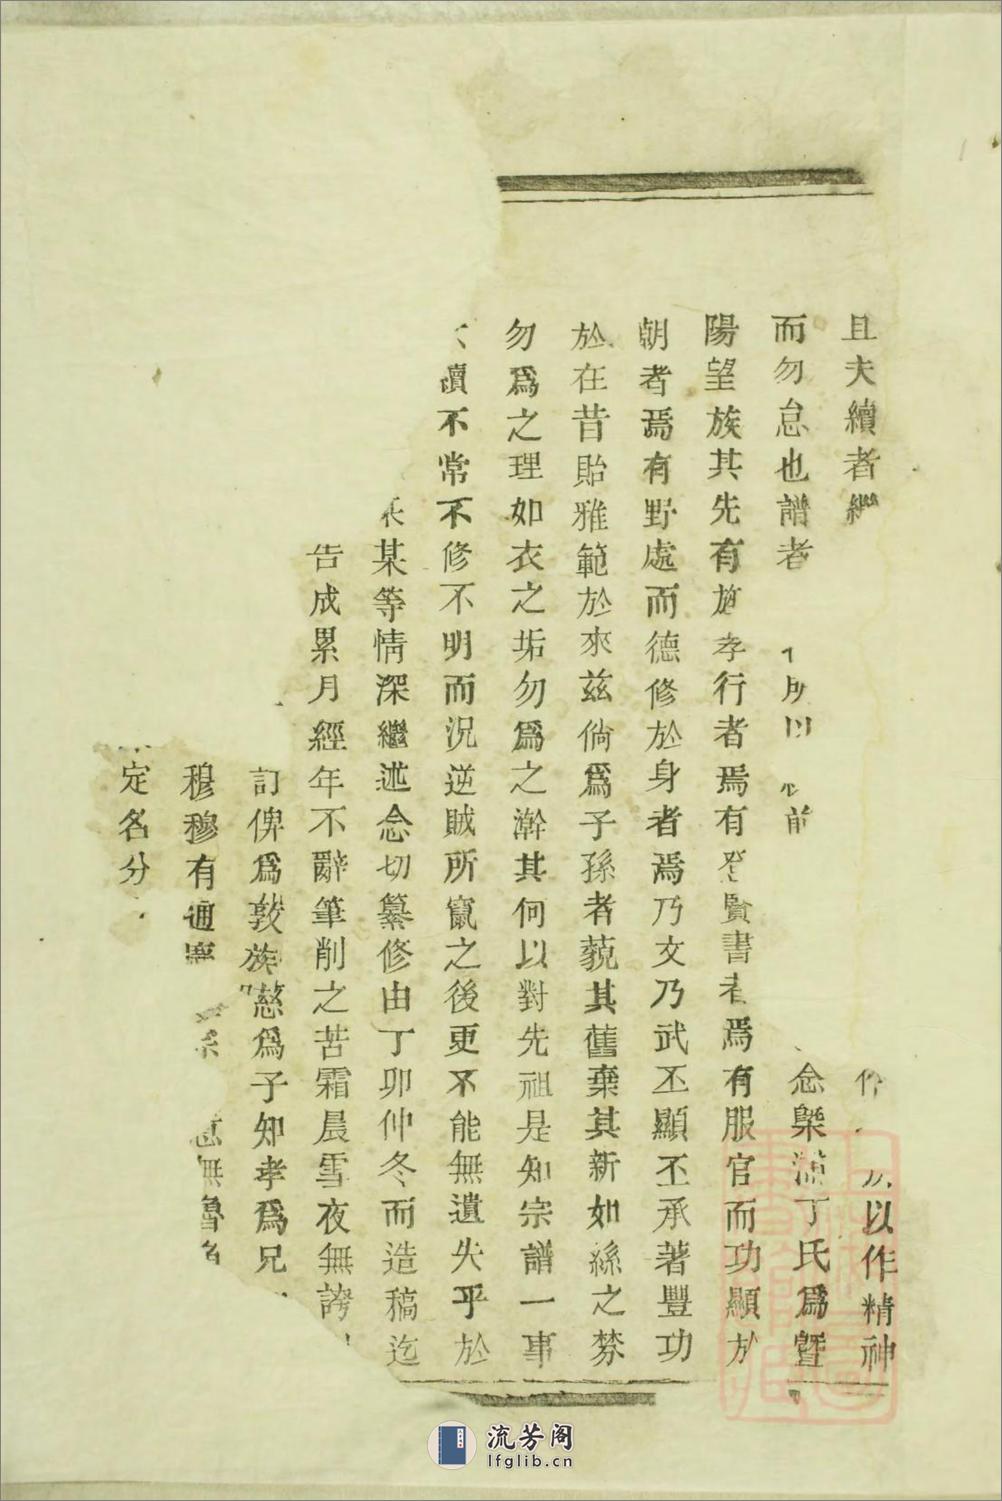 且夫續者繼 以作精神
而勿怠也譜者 所以 前 念槩浦丁氏爲曁
陽望族其先有 孝行者焉有登賢書者焉有服官而功顯於
朝者焉有野處而德修於身者焉乃文乃武丕顯丕承著豐功
於在昔貽雅範於來茲倘爲子孫者藐其舊棄其新如絲之棼
勿爲之理如衣之垢勿爲之澣其何以對先祖是知宗譜一事
續不常不修不明而況逆賊所竄之後更不能無遺失乎於
某等情深繼述念切纂修由丁卯仲冬而造稿迄
告成累月經年不辭筆削之苦霜晨雪夜無誇
訂俾爲敦族 慈爲子知孝爲兄
穆穆有 無魯
定名分
流芳阁
lfglib.cn